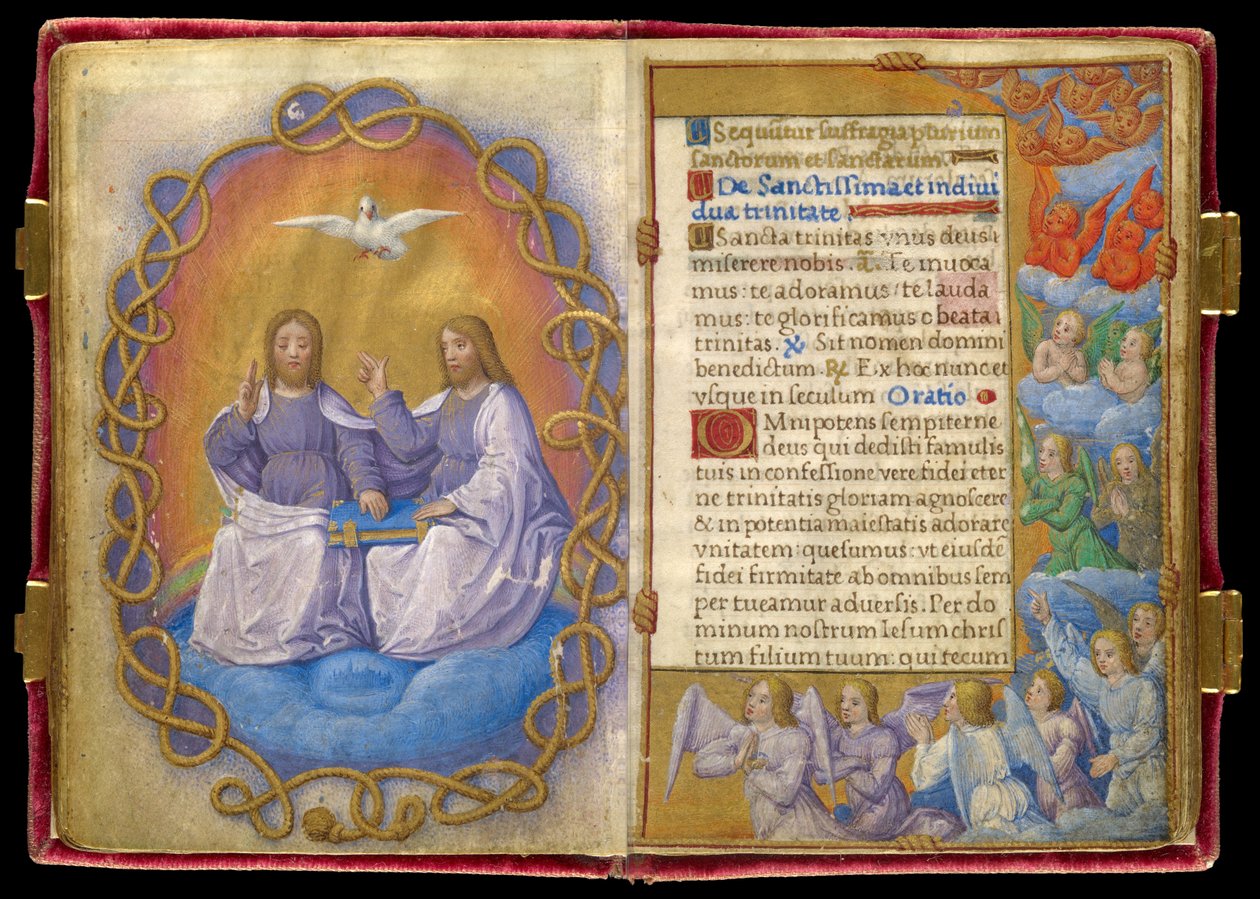 Sequūtur suffragia plurium
sanctorum et sanctarum
De Sanctissima et indivi
dua trinitate
Sancta trinitas vnus deus
miserere nobis. a. Te inuoca
mus: te adoramus/te lauda
mus: te glorificamus o beata
trinitas. ℣ Sit nomen domini
benedictum. ℟ Ex hoc nunc et
vsque in seculum Oratio
OMnipotens sempiterne
deus qui dedisti famulis
tuis in confessione vere fidei eter
ne trinitatis gloriam agnoscere
& in potentia maiestatis adorare
vnitatem: quesumus: vt eiusdē
fidei firmitate ab omnibus sem
per tueamur aduersis. Per do
minum nostrum Iesum chris
tum filium tuum: qui tecum